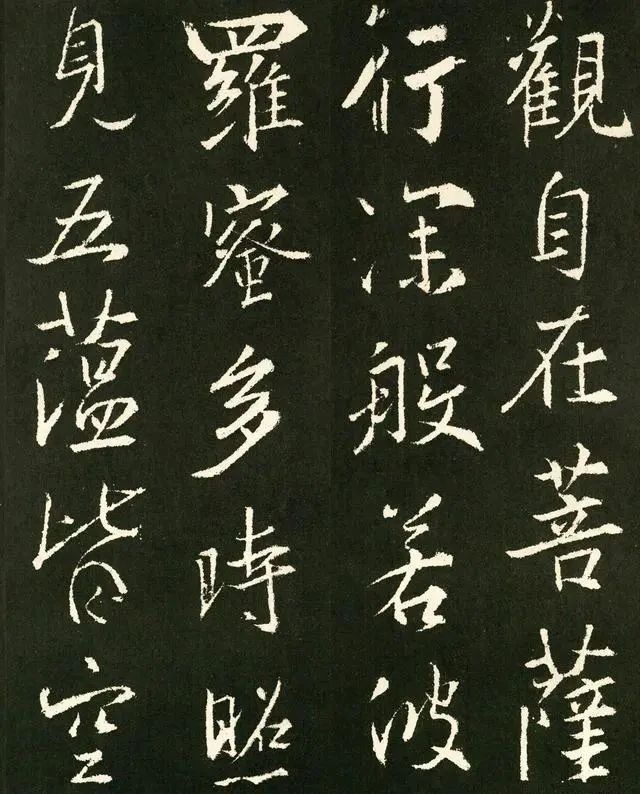 觀自在菩薩
行深般若波
羅蜜多時照
見五蘊皆空